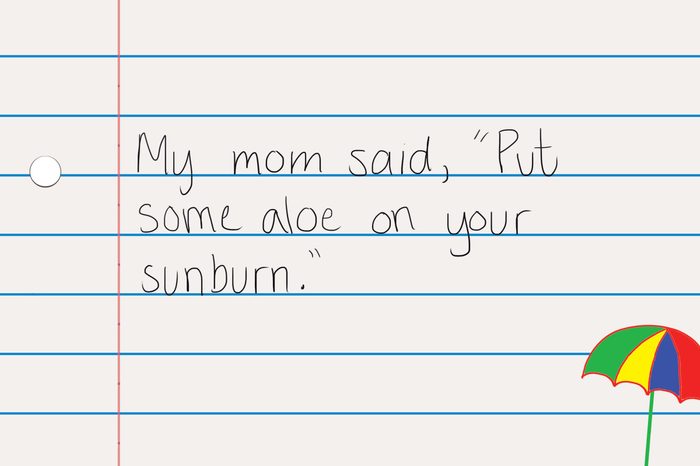 My mom said, "Put
some aloe on your
sunburn."